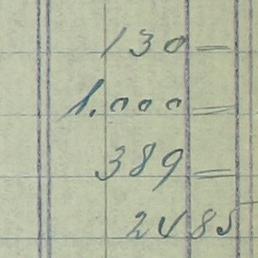 130 =
1.000 =
389 =
2485